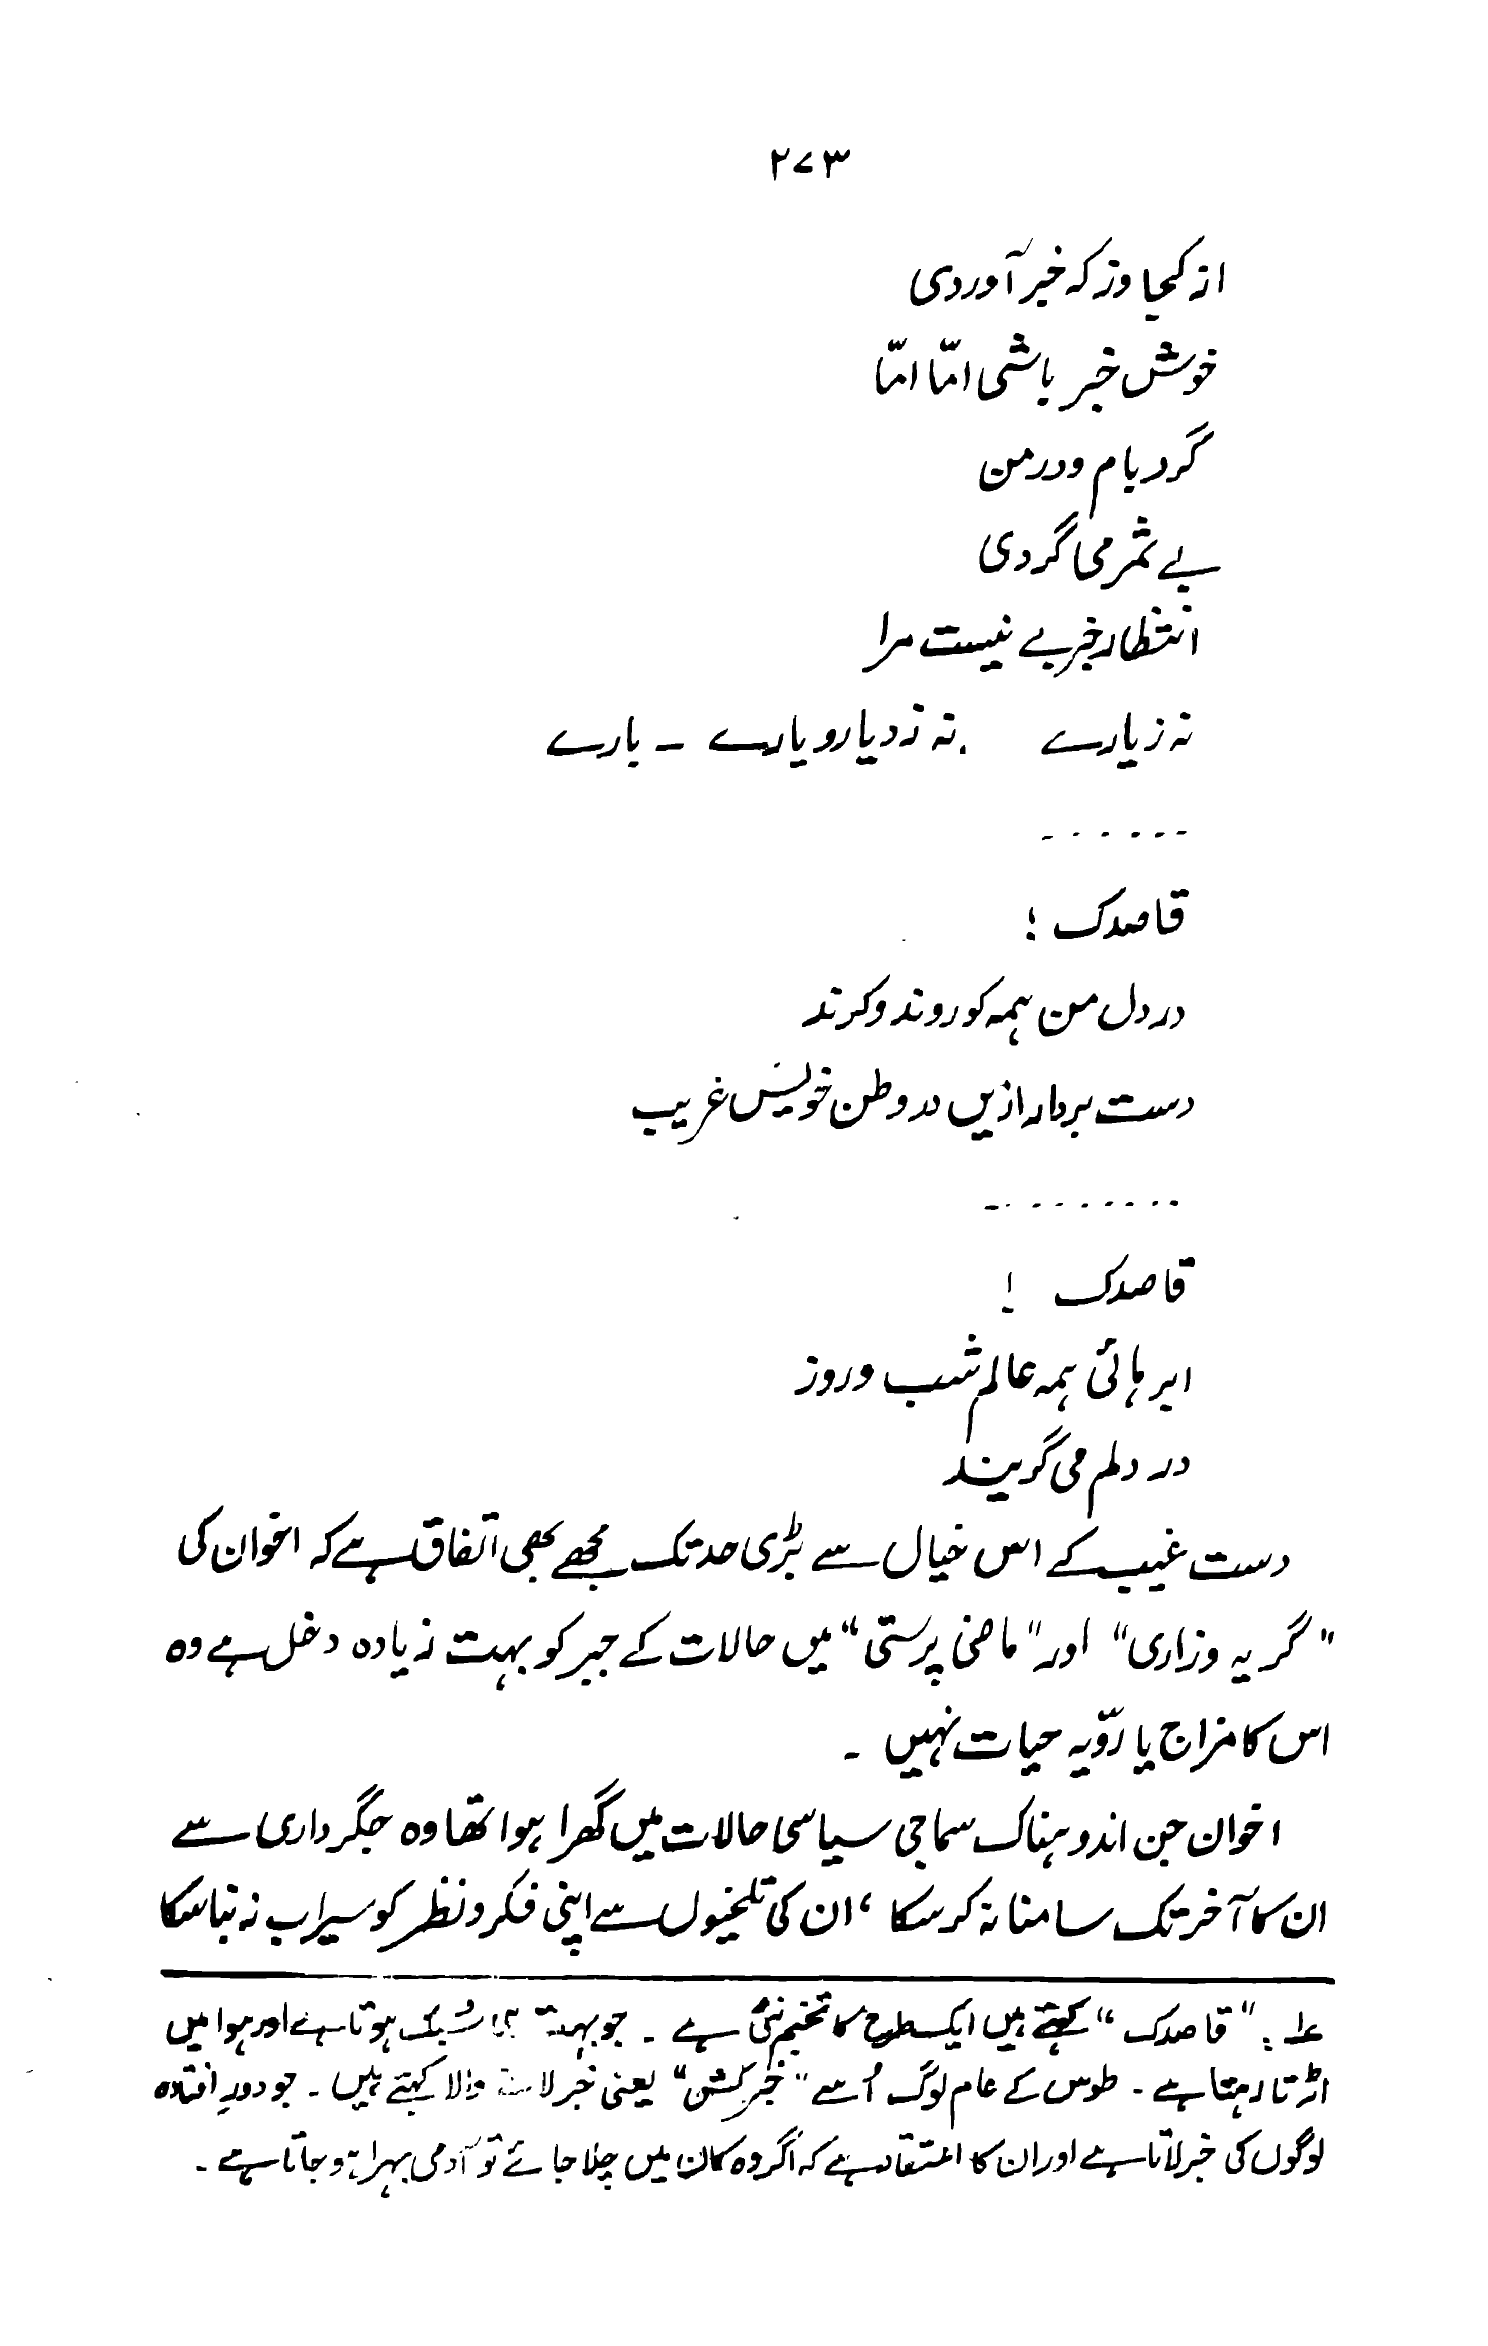 ۲۷۳
از کجا وز کہ خبر آوردی
خوش خبر باشی امّا امّا
گرد بام و در من
بے ثمر می گردی
انتظار خبرے نیست مرا
نہ زیارے نہ ز دیار و یارے ۔ بارے
۔۔۔۔۔۔
قاصدک !
در دل من ہمہ کورند و کرند
دست بردار ازیں در وطن خویش غریب
۔۔۔۔۔۔۔۔۔
قاصدک !
ابر ہائی ہمہ عالم شب و روز
در دلم می گریند
دست غیب کے اس خیال سے بڑی حد تک مجھے بھی اتفاق ہے کہ اخوان کی
"گریہ وزاری" اور "ماضی پرستی" میں حالات کے جبر کو بہت زیادہ دخل ہے وہ
اس کا مزاج یا رَوّیہ حیات نہیں ۔
اخوان جن اندوہناک سماجی سیاسی حالات میں گھرا ہوا تھا وہ جگرداری سے
ان کا آخر تک سامنا نہ کرسکا ، ان کی تلخیوں سے اپنی فکر و نظر کو سیراب نہ بنا سکا
؂۱ : "قاصدک" کہتے ہیں ایک طرح کا تخم نئی ہے ۔ جو بہت ہی سُبک ہوتا ہے اور ہوا میں
اڑتا رہتا ہے ۔ طوس کے عام لوگ اُسے "خبرکش" یعنی خبر لانے والا کہتے ہیں ۔ جو دور افتادہ
لوگوں کی خبر لاتا ہے اور ان کا اعتقاد ہے کہ اگر وہ کان میں چلا جائے تو آدمی بہرا ہو جاتا ہے ۔